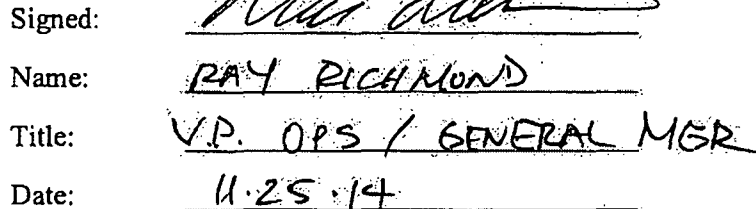 Signed:
Name: RAY RICHMOND
Title: V.P. OPS / GENERAL MGR
Date: 11.25.14